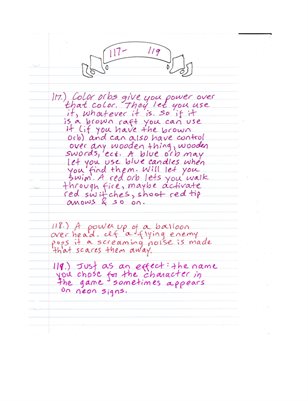 117- 119
117.) Color orbs give you power over
that color. They let you use
it, whatever it is. So if it
is a brown raft you can use
it (if you have the brown
orb) and can also have control
over any wooden thing, wooden
swords, ece. A blue orb may
let you use blue candles when
you find them. Will let you
swim. A red orb lets you walk
through fire, maybe activate
red switches, shoot red tip
arrows & so on.
118.) A power up of a balloon
over head. If a flying enemy
pops it a screaming noise is made
that scares them away.
119.) Just as an effect: the name
you chose for the character in
the game sometimes appears
on neon signs.